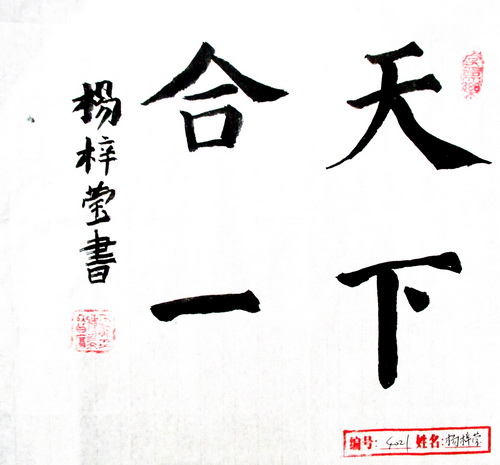 天下
合一
杨梓莹書
编号: 4021 姓名: 杨梓莹